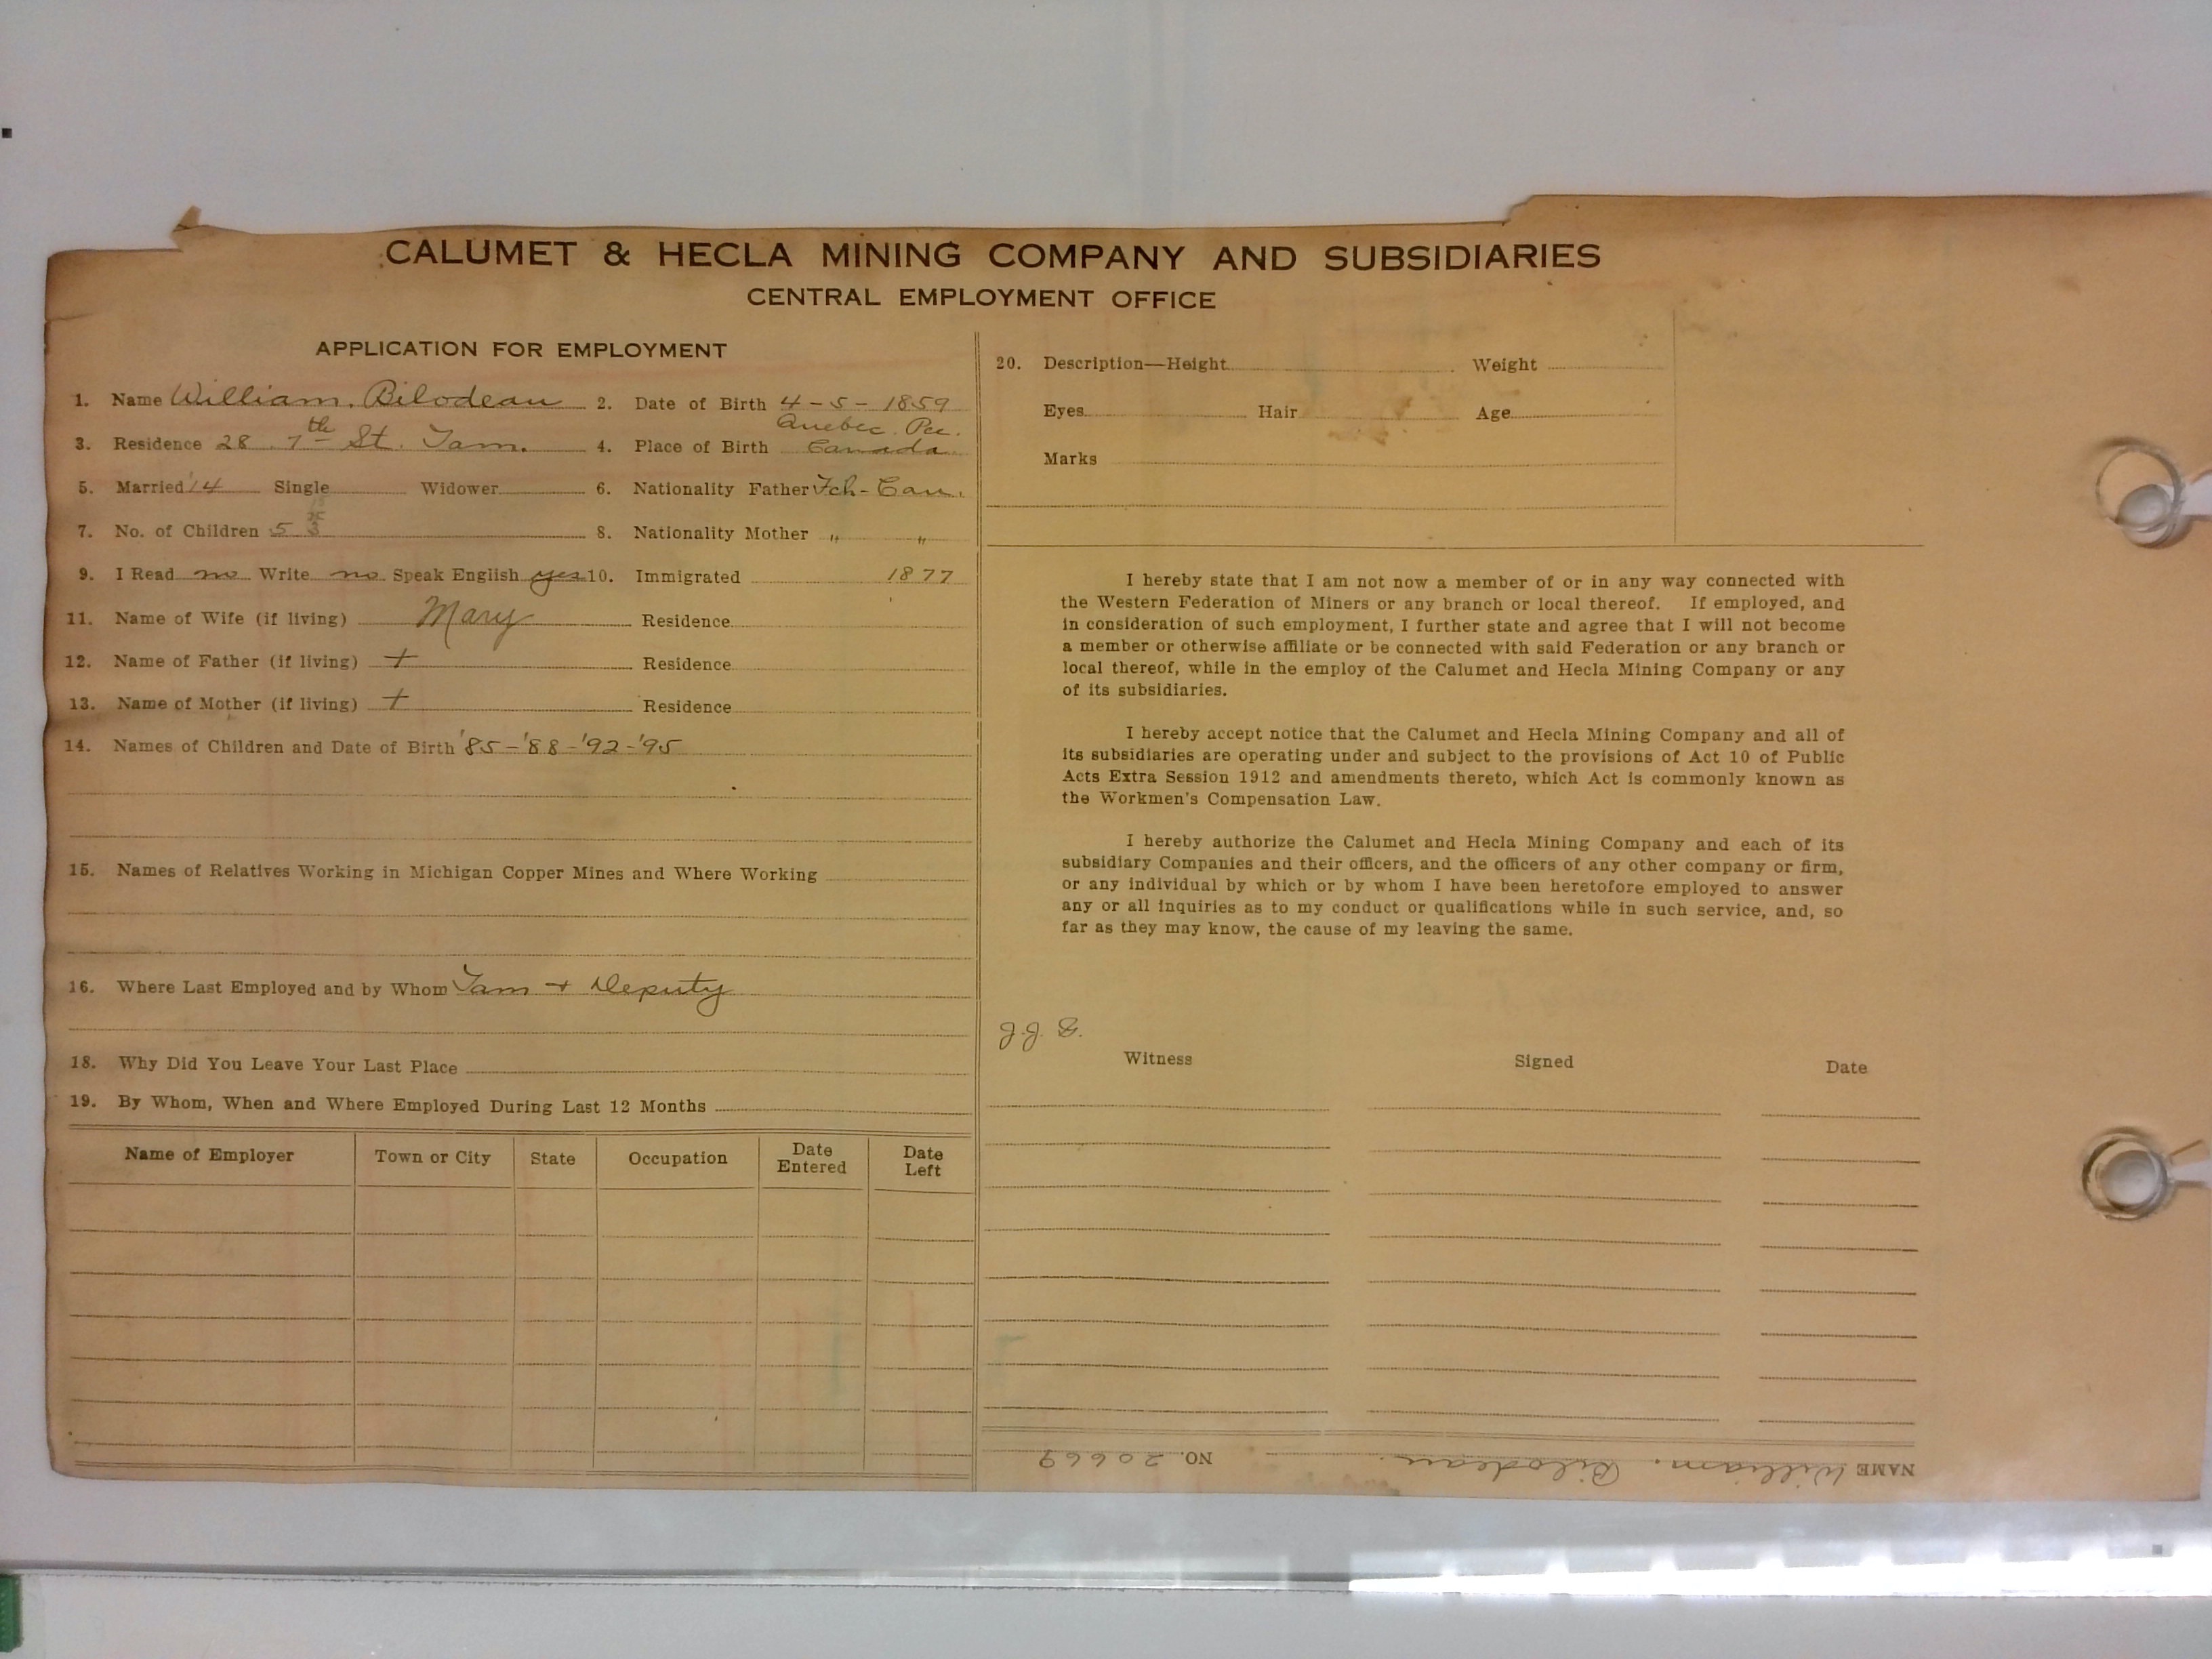 CALUMET & HECLA MINING COMPANY AND SUBSIDIARIES
CENTRAL EMPLOYMENT OFFICE
APPLICATION FOR EMPLOYMENT
1. Name William. Bilodeau 2. Date of Birth 4-5-1859
3. Residence 28 7th St. Tam. 4. Place of Birth Quebec Canada
5. Married '14 Single Widower 6. Nationality Father Fch-Can.
7. No. of Children 5 3 8. Nationality Mother " "
9. I Read no Write no Speak English yes 10. Immigrated 1877
11. Name of Wife (if living) Mary Residence
12. Name of Father (if living) + Residence
13. Name of Mother (if living) + Residence
14. Names of Children and Date of Birth '85-'88-'92-'95
15. Names of Relatives Working in Michigan Copper Mines and Where Working
16. Where Last Employed and by Whom Tam + Deputy
18. Why Did You Leave Your Last Place
19. By Whom, When and Where Employed During Last 12 Months
Name of Employer Town or City State Occupation Date Entered Date Left
20. Description—Height Weight
Eyes Hair Age
Marks
I hereby state that I am not now a member of or in any way connected with
the Western Federation of Miners or any branch or local thereof. If employed, and
in consideration of such employment, I further state and agree that I will not become
a member or otherwise affiliate or be connected with said Federation or any branch or
local thereof, while in the employ of the Calumet and Hecla Mining Company or any
of its subsidiaries.
I hereby accept notice that the Calumet and Hecla Mining Company and all of
its subsidiaries are operating under and subject to the provisions of Act 10 of Public
Acts Extra Session 1912 and amendments thereto, which Act is commonly known as
the Workmen's Compensation Law.
I hereby authorize the Calumet and Hecla Mining Company and each of its
subsidiary Companies and their officers, and the officers of any other company or firm,
or any individual by which or by whom I have been heretofore employed to answer
any or all inquiries as to my conduct or qualifications while in such service, and, so
far as they may know, the cause of my leaving the same.
J.J.
Witness Signed Date
NAME William. Bilodeau. NO. 20669